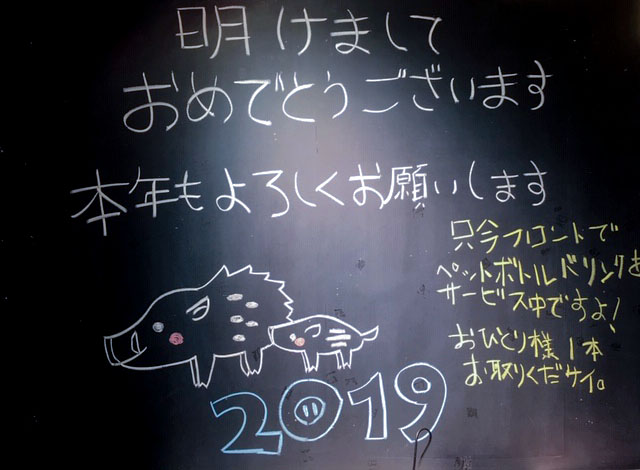 明けまして
おめでとうございます
本年もよろしくお願いします
只今フロントで
ペットボトルドリンクを
サービス中ですよ!
おひとり様1本
お取りくだサイ。
2019